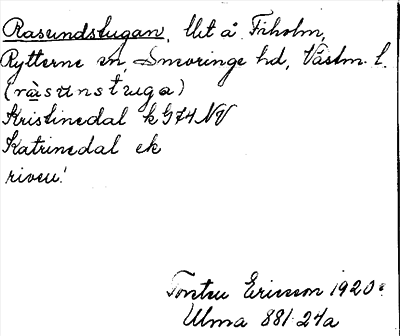 Rasundstugan, Ut å Fiholm,
Rytterne sn, Snevringe hd, Västm. l.
(ràsunstuga)
Kristinedal k G74 NV
Katrinedal ek
riven!
Torsten Ericsson 1920
Ulma 881:24a